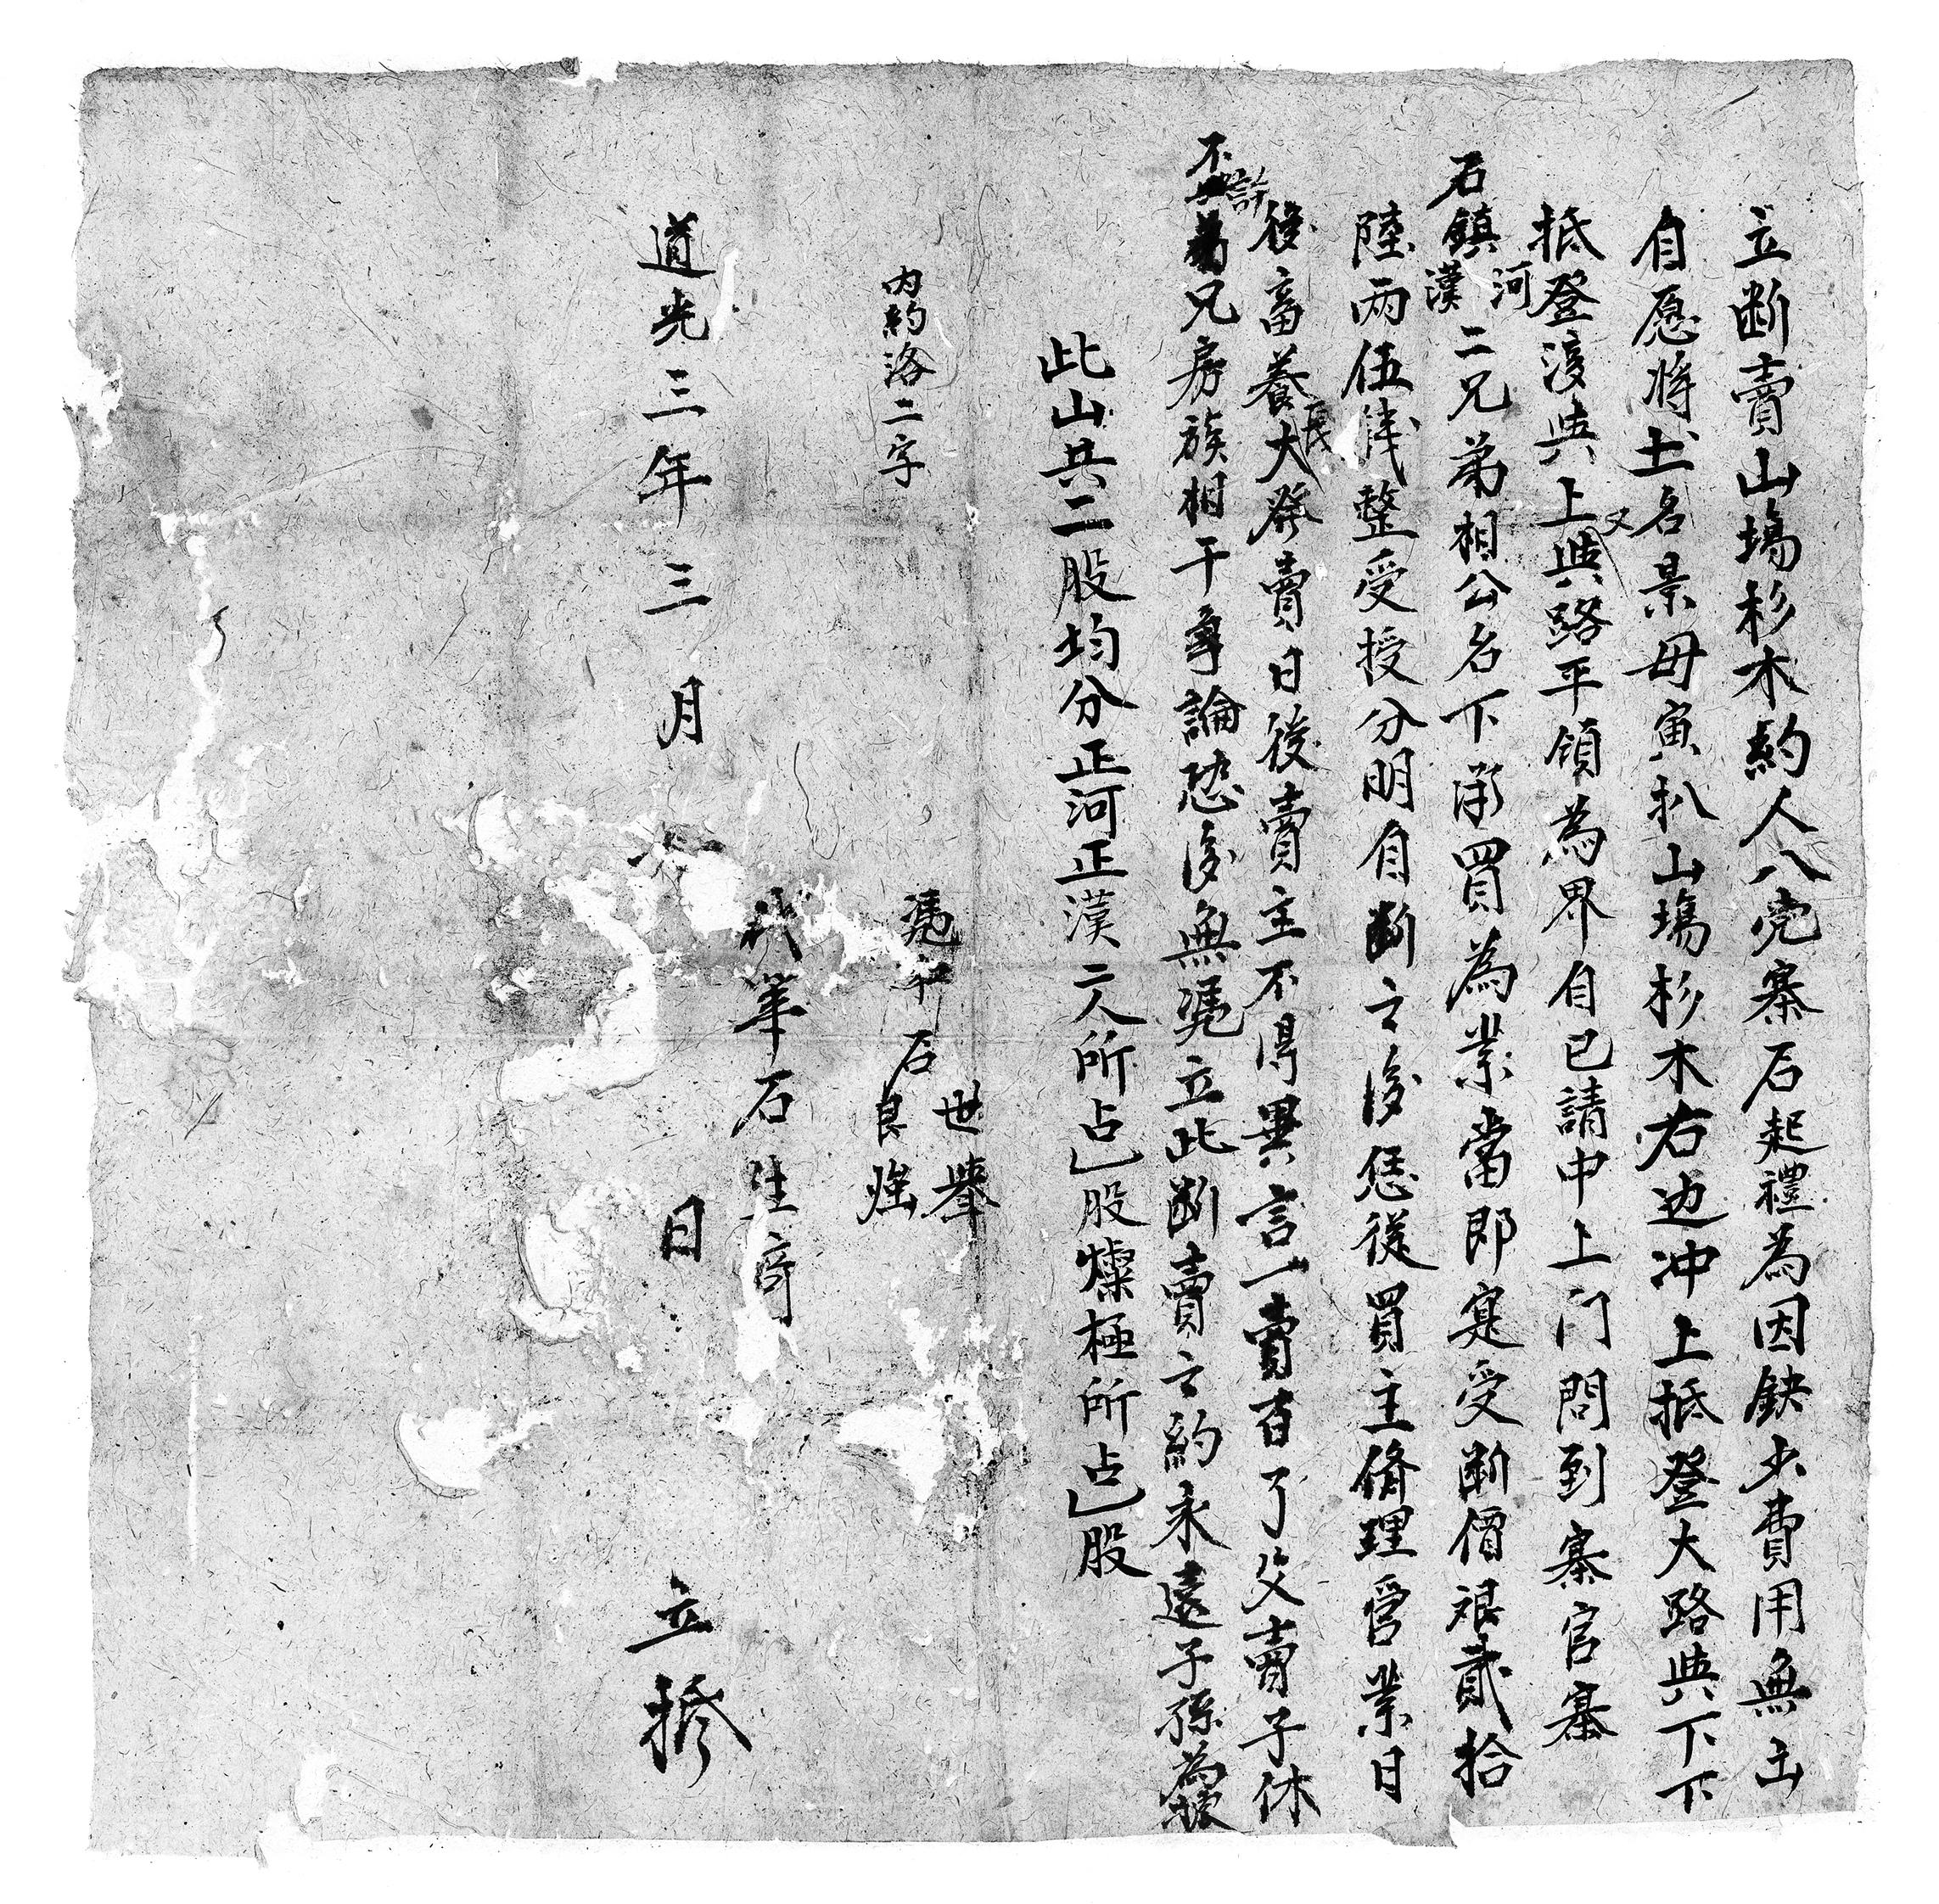 立断賣山塲杉木約人八党寨石起禮為因缺少費用無出
自愿將土名景毋寅扒山塲杉木右边冲上抵登大路與下下
抵登溇與上又與路平領為界自己請中上门問到寨官寨
石鎮河漢二兄弟相公名下承買為業當即寔受断價艮貳拾
陸兩伍錢整受授分明自断之後恁從買主脩理管業日
後畜養長大發賣日後賣主不得異言一賣百了父賣子休
不許兄房族相干爭論恐後無凴立此断賣之約永遠子孫為據
此山共二股均分正河正漢二人所占乚股燦極所占乚股
内約洛二字
凴中石世舉良
代筆石生奇
道光三年三月 日 立